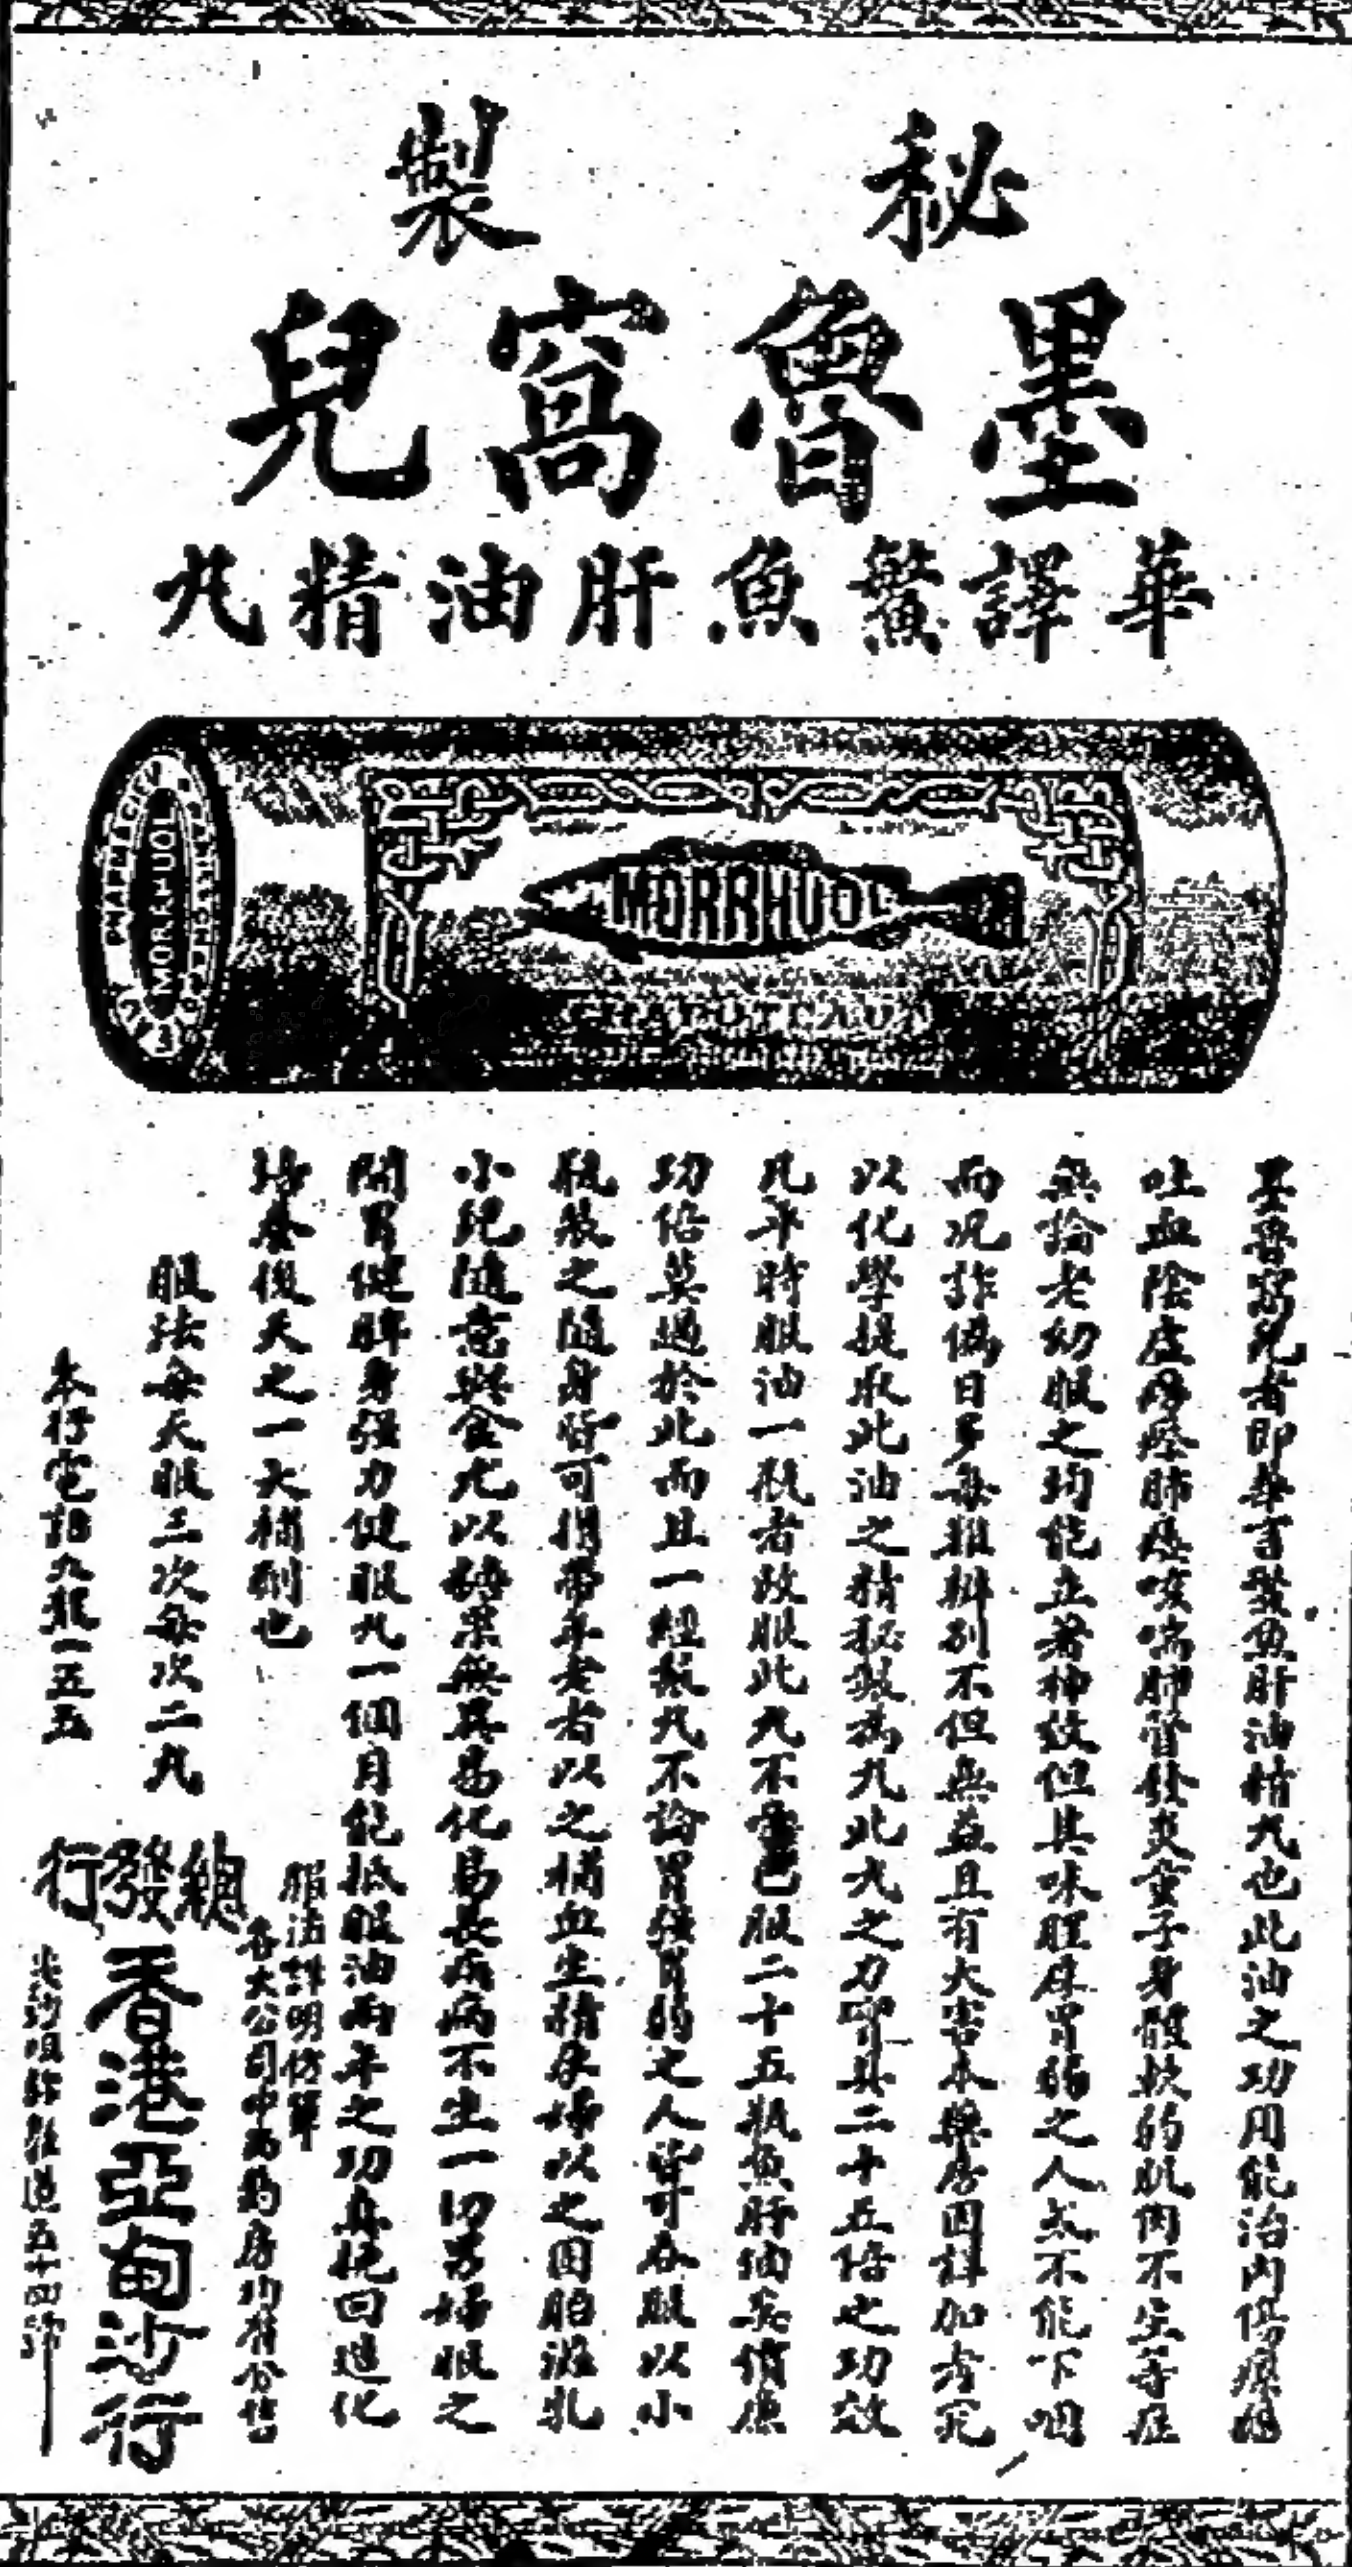 秘製
墨魯窩兒
華譯鱉魚肝油精丸
MORRHUOL
MORRHUOL
CHAPOTEAUT
墨魯窩兒者即華言鱉魚肝油精丸也此油之功用能治內傷
吐血陰虛癆瘵肺癆咳喘肺管發炎童子身體軟弱肌肉不生等症
無論老幼服之均能立著神效但其味腥膩胃弱之人式不能下咽
而况詐偽日多每難辨別不但無益且有大害本藥房因詳加考究
以化學提取此油之精秘製為丸此丸之力量具二十五倍之功效
凡平時服油一瓶者改服此丸不啻已服二十五瓶魚肝油矣價廉
功倍莫過於此而且一經製丸不論胃强胃弱之人皆可吞服以小
瓶裝之隨身皆可攜帶年老者以之補血生精孕婦以之固胎滋乳
小兒隨意與食尤以糖菓無異易化易長疾病不生一切男婦服之
開胃健脾身强力健服丸一個月能抵服油兩年之功真挽回造化
培養後天之一大補劑也
服法每天服三次每次二丸
服法詳明仿單
各大公司中西药房均有分售
本行電話九龍一五五
總發行
香港亞甸沙行
尖沙咀 道五十四號